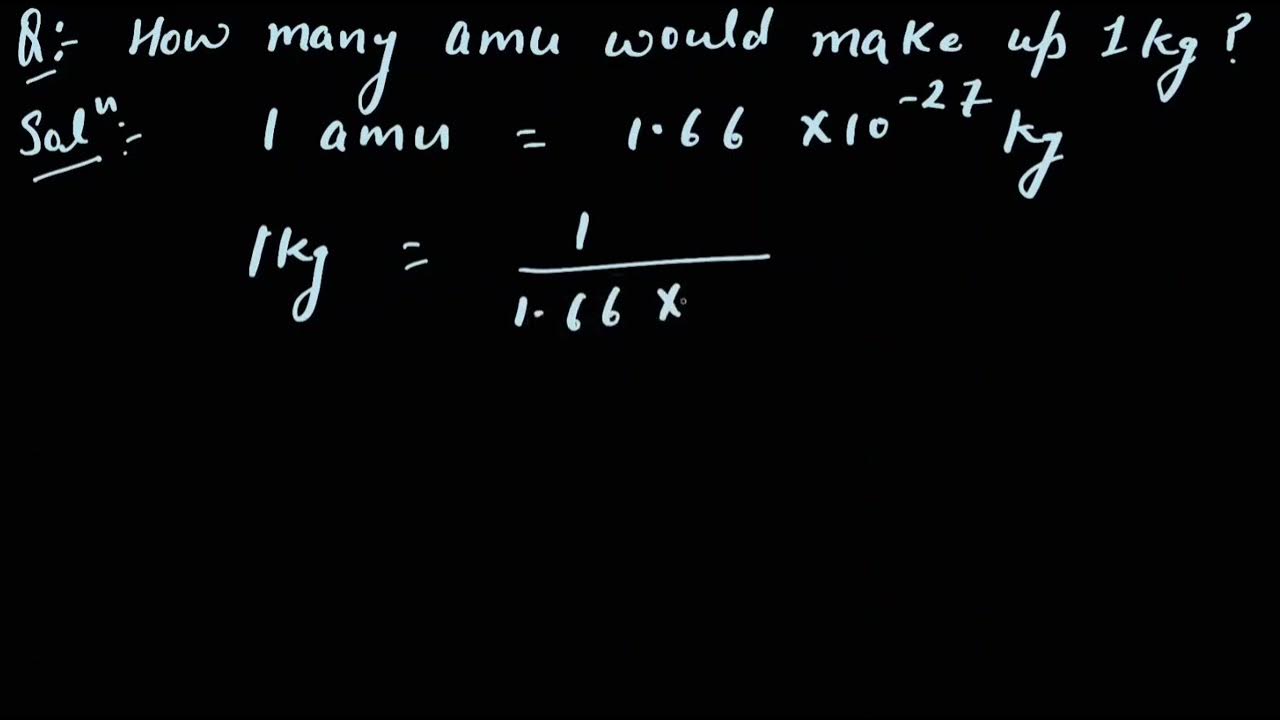 Q:- How many amu would make up 1 kg ?
Solⁿ:- 1 amu = 1.66 × 10⁻²⁷ kg
1 kg = 1
1.66 ×